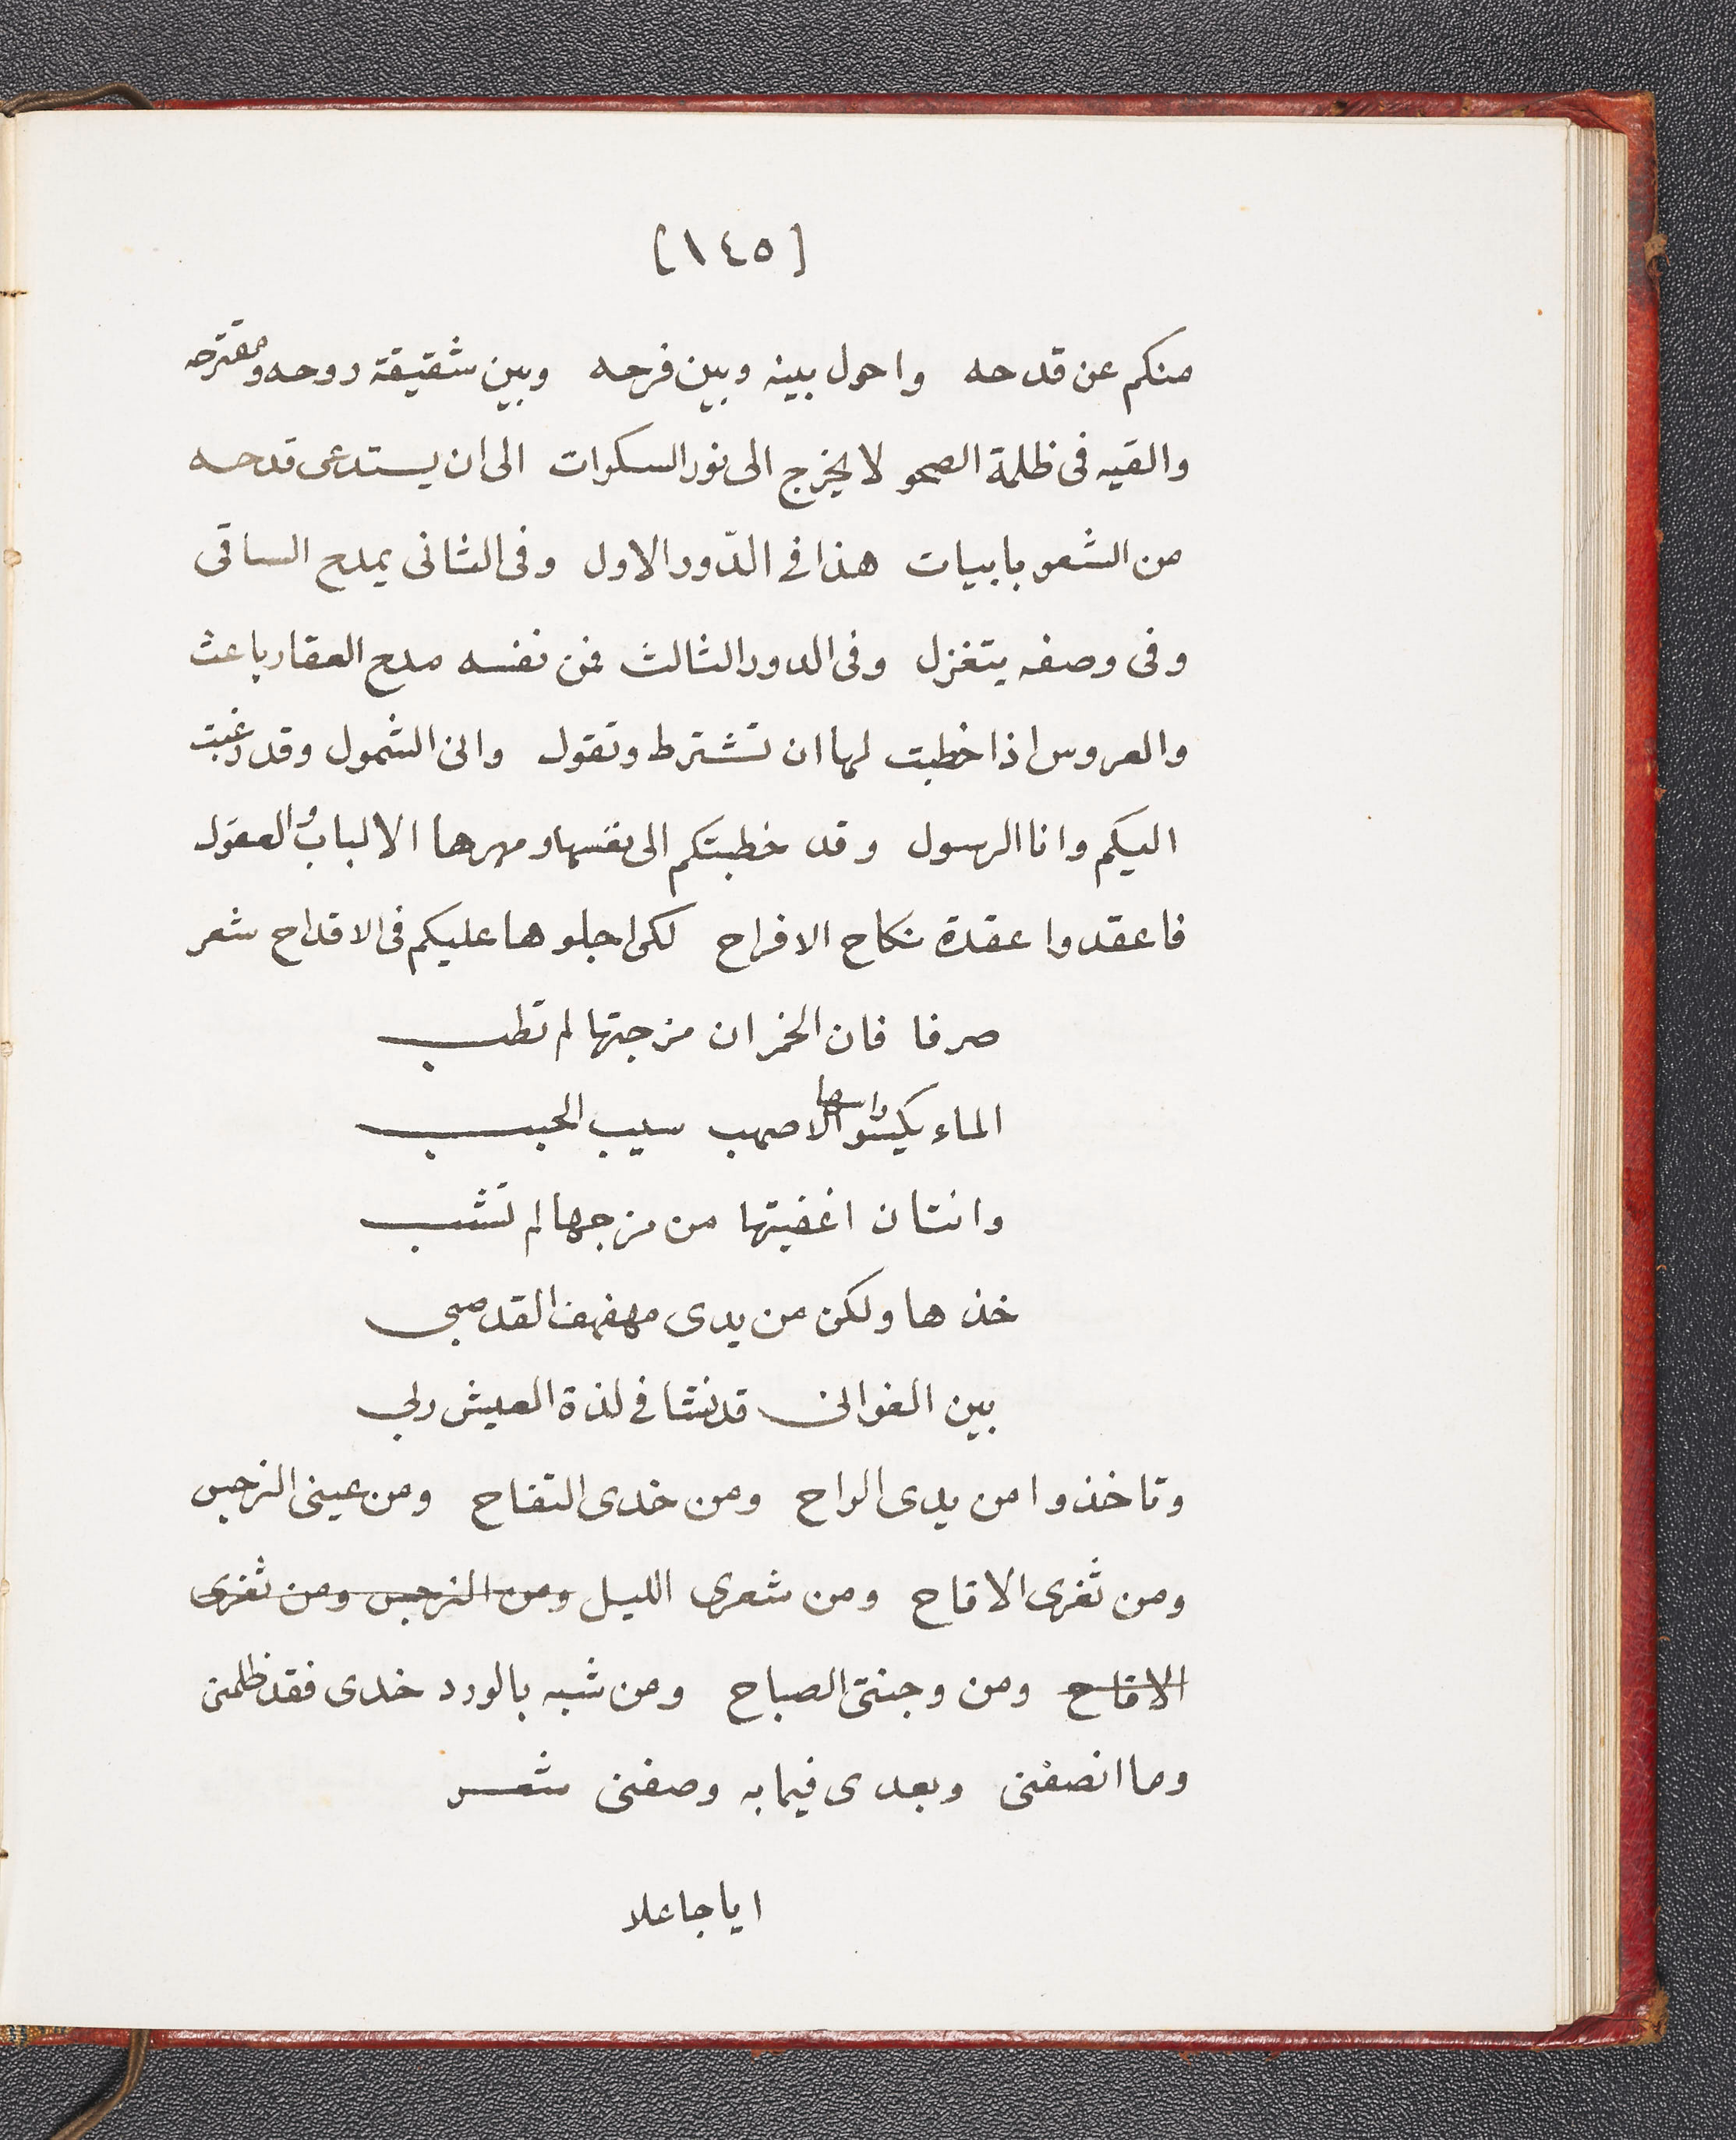 [١٤٥]
منكم عن قدحه واحول بينه وبين فرحه وبين شقيقة روحه ومقترحه
والقيه فى ظلمة الصحو لا يخرج الى نور السكرات الى ان يستدعى قدحه
من الشعر بابيات هذا فى الدّور الاول وفى الثانى يمدح الساقى
وفى وصفه يتغزل وفى الدور الثالث فمن نفسه مدح العقار باعث
والعروس اذا خطبت لها ان تشترط وتقول وان الشمول وقد رغبت
اليكم وانا الرسول وقد خطبتكم الى نفسها ومهرها الالباب والعقول
فاعقدوا عقدة نكاح الافراح لكى اجلوها عليكم فى الاقداح شعر
صرفا فان الخمر ان مزجتها لم تطب
الماء يكسو راسها الاصهب سيب الحبب
وانت ان اعفيتها من مزجها لم تشب
خذها ولكن من يدى مهفهف القد صبى
بين الغوانى قد نشا فى لذة العيش ربى
وتاخذوا من يدى الراح ومن خدى التفاح ومن عينى النرجس
ومن ثغرى الاقاح ومن شعرى الليل ومن النرجس ومن ثغرى
الاقاح ومن وجنتى الصباح ومن شبه بالورد خدى فقد ظلمنى
وما انصفنى وبعدى فيما به وصفنى شعر
ايا جاعلا